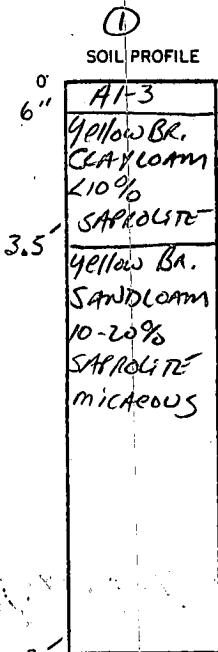 1
SOIL PROFILE
0'
A1-3
6"
Yellow BR.
CLAYLOAM
<10%
SAPROLITE
3.5'
Yellow BR.
SANDLOAM
10-20%
SAPROLITE
micaeous